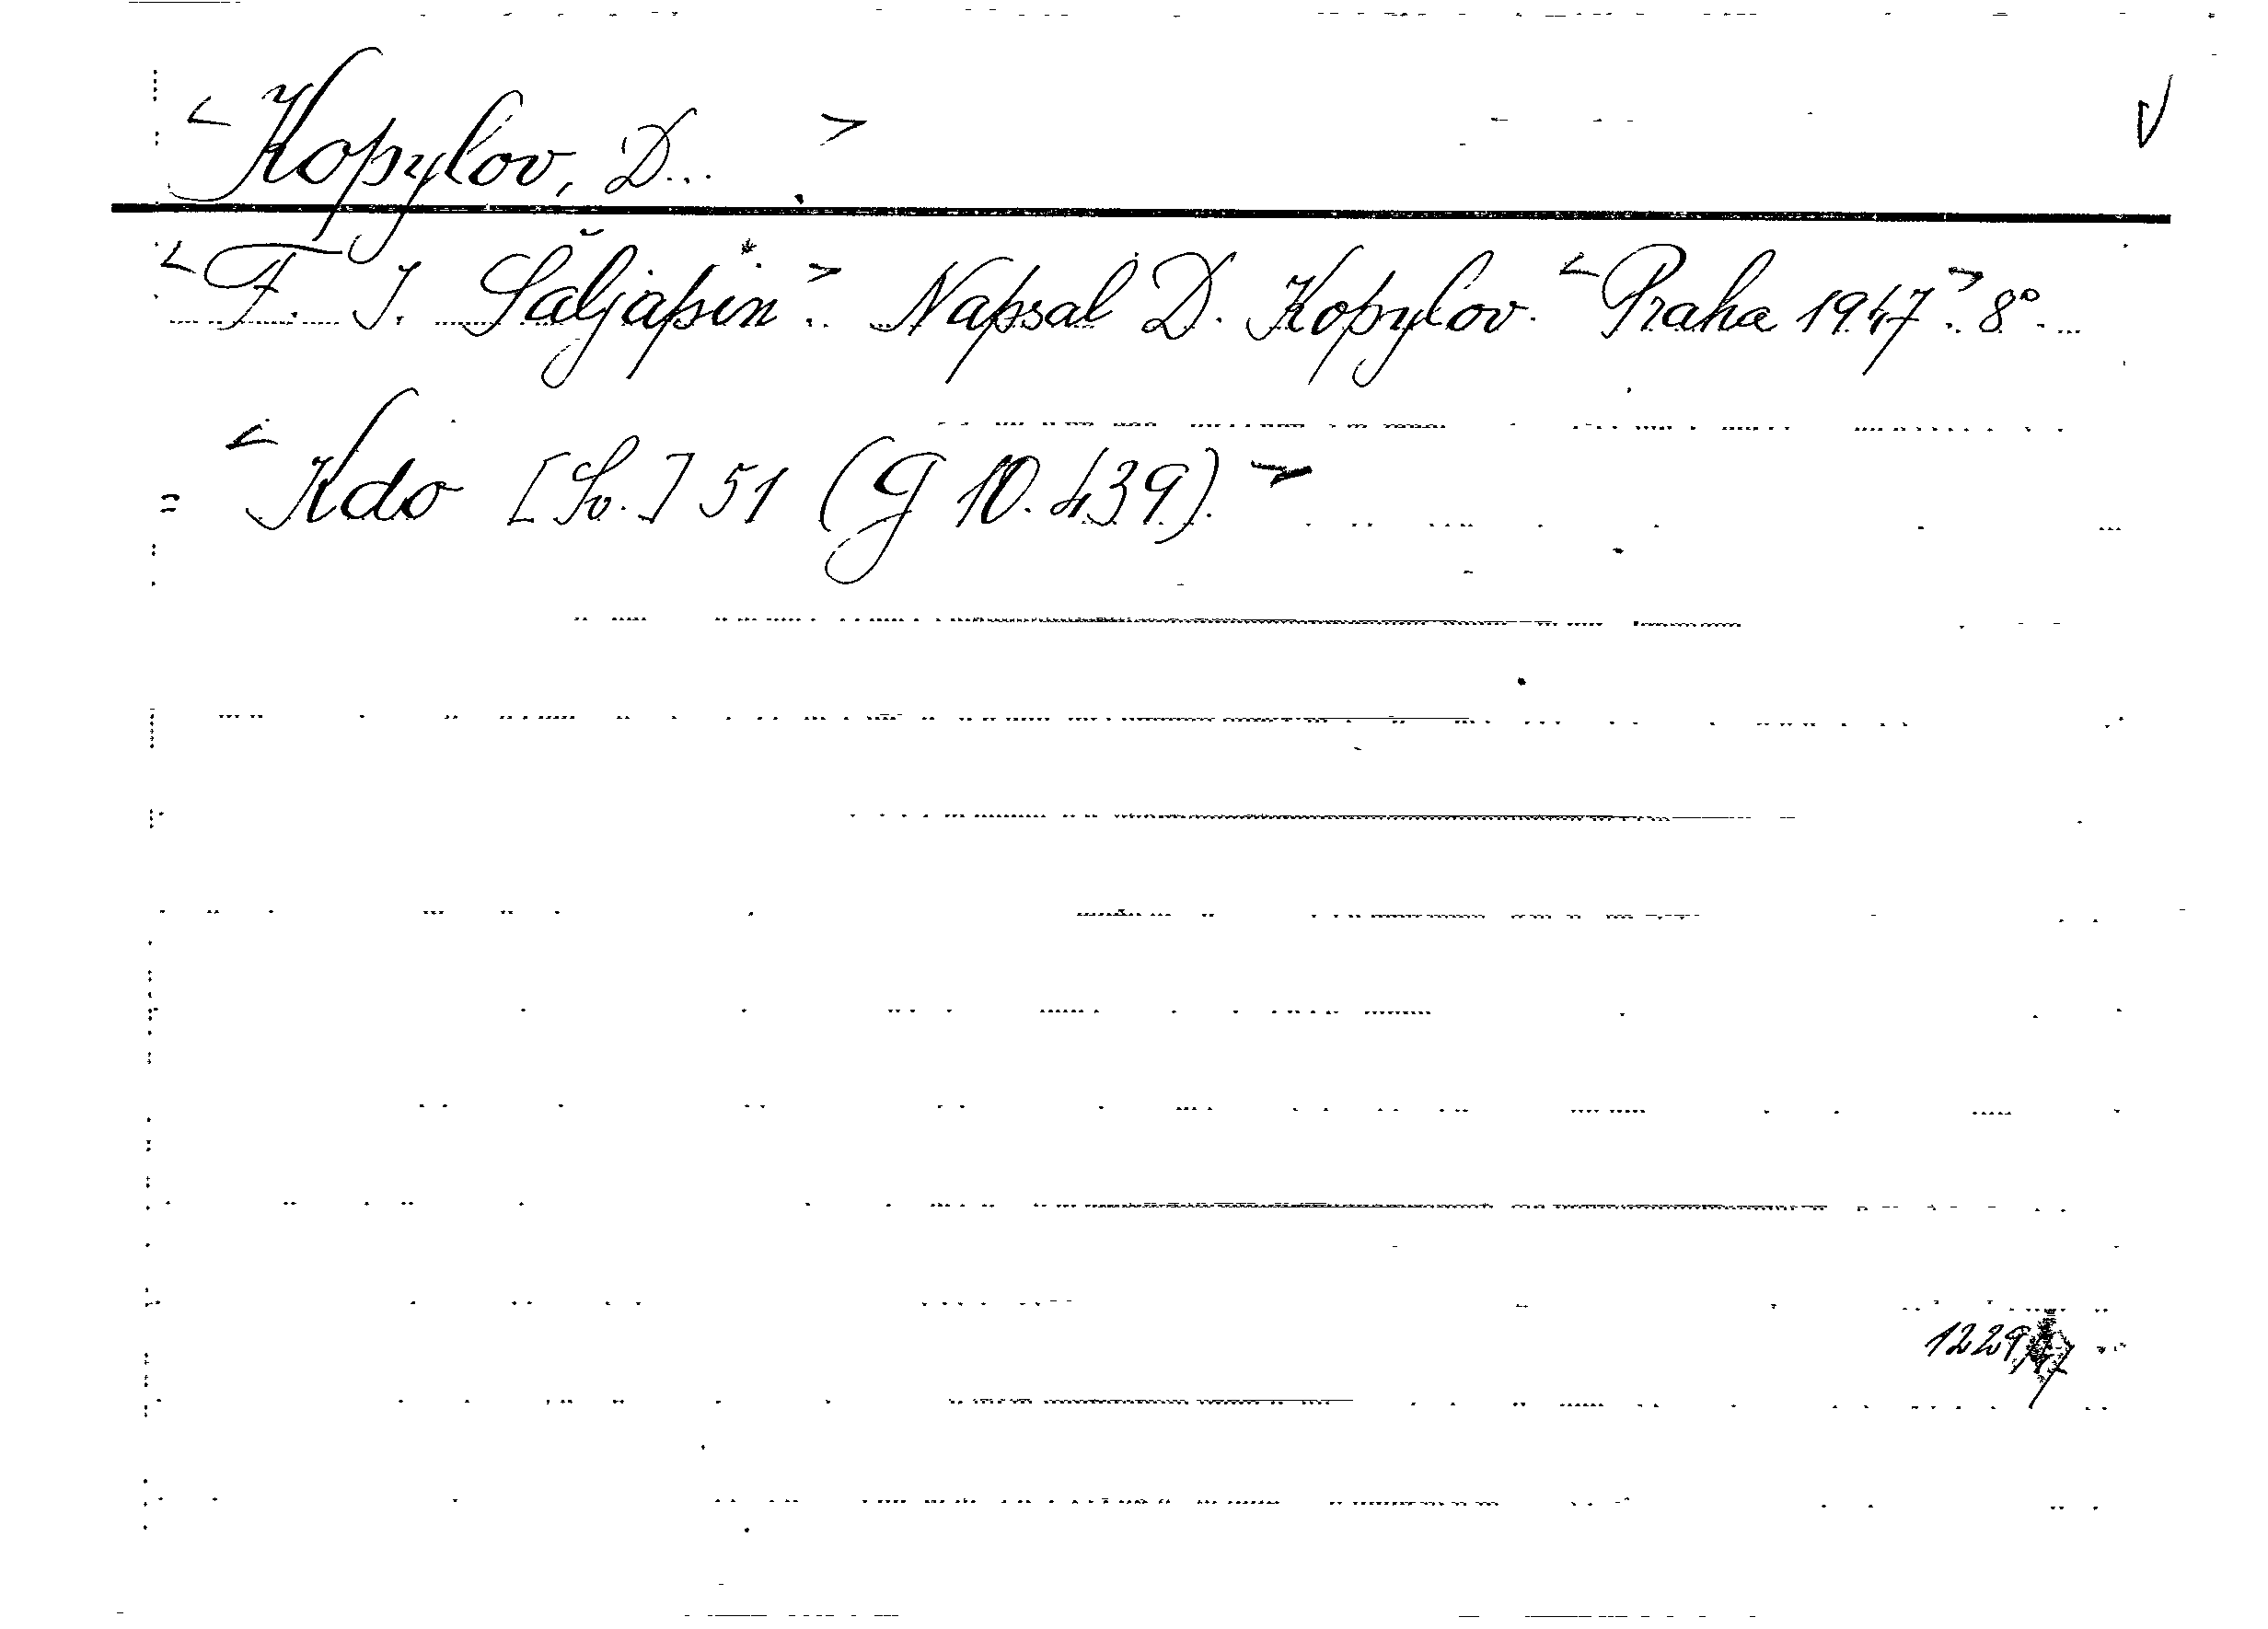 < Kopylov, D... > √
< F. I. Šaljapin. > Napsal D. Kopylov. < Praha 1947. > 8°.
= < Kdo [Sv.] 51 (G 10.439). >
1229/47